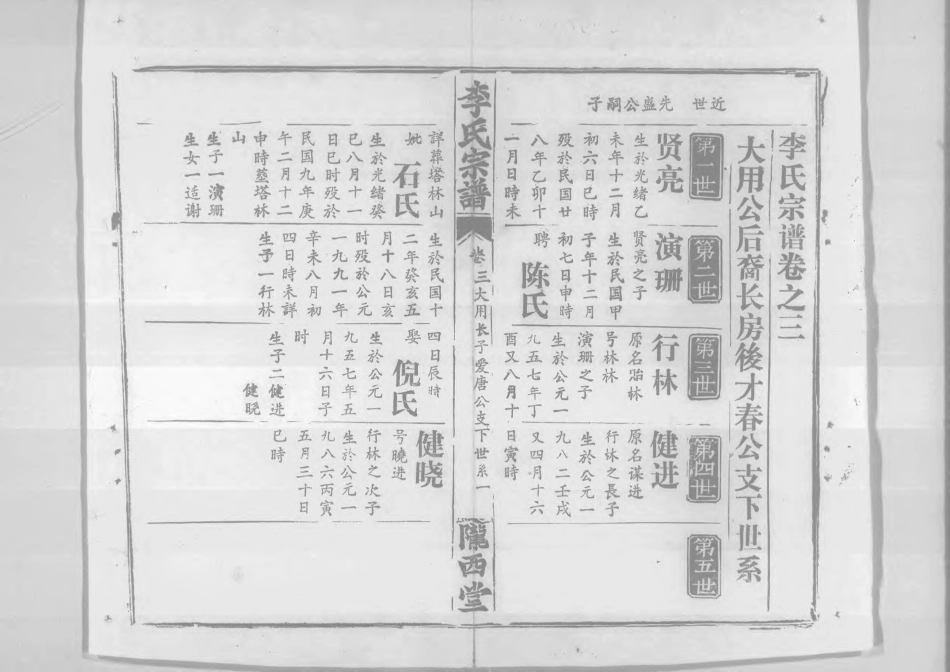 李氏宗谱卷之三
大用公后裔长房後才春公支下世系
近世 先盛公嗣子
第一世
贤亮
生於光绪乙
未年十二月
初六日巳時
殁於民国廿
八年乙卯十
一月日時未
詳葬塔林山
妣 石氏
生於光绪癸
巳八月十一
日巳时殁於
民国九年庚
午二月十二
申時墓塔林
山
生子一演珊
生女一适谢
第二世
演珊
贤亮之子
生於民国甲
子年十二月
初七日申時
聘 陈氏
生於民国十
二年癸亥五
月十八日亥
时殁於公元
一九九一年
辛未八月初
四日時未詳
生子一行林
第三世
行林
原名贻林
号林林
演珊之子
生於公元一
九五七年丁
酉又八月十
四日辰时
娶 倪氏
生於公元一
九五七年五
月十六日子
时
生子二健进
健晓
第四世
健进
原名谋进
行林之長子
生於公元一
九八二壬戌
又四月十六
日寅時
健晓
号曉进
行林之次子
生於公元一
九八六丙寅
五月三十日
巳時
第五世
李氏宗譜
卷三大用长子爱唐公支下世系一
隴西堂